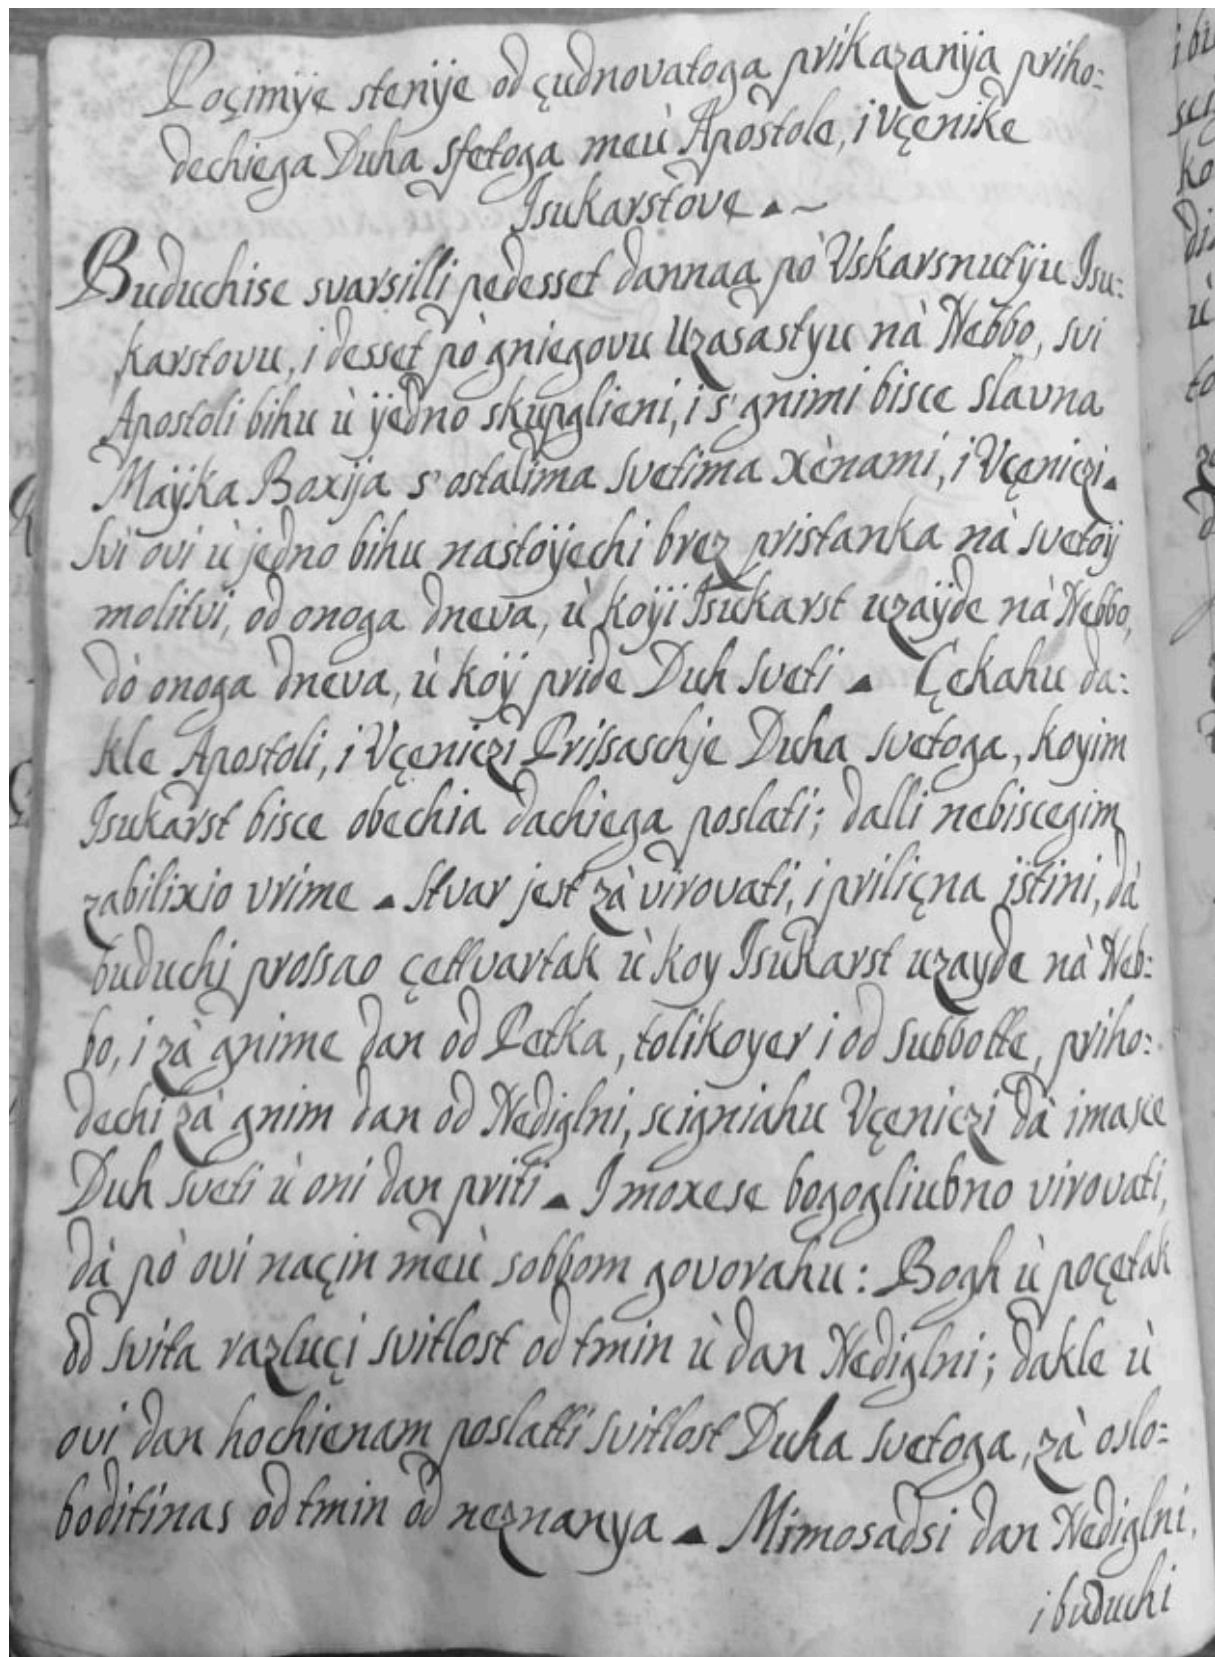 Poçimÿe stenÿe od çudnovatoga prikazanÿa priho=
dechiega Duha sfetoga meù Apostole, i Vçenike
Isukarstove.~
Buduchise svarsilli pedesset dannaa pò Vskarsnutÿu Isu=
karstovu, i desset pò gniegovu Uzasastyu nà Nebbo, svi
Apostoli bihu ù ÿedno skupglieni, i s' gnimi bisce slavna
Maÿka Boxÿa s' ostalima svetima xènami, i Vçeniczi.
Svi ovi ù jedno bihu nastoÿechi brez pristanka nà svetoÿ
molitvi, od onoga dneva, ù koÿi Isukarst uzaÿde nà Nebbo,
dò onoga dneva, ù koÿ pride Duh sveti. Çekahu da=
kle Apostoli, i Vçeniczi Prissaschje Duha svetoga, koyim
Isukarst bisce obechia dachiega poslati; dalli nebiscegim
zabilixio vrime. Stvar jest zà virovati, i priliçna istini, dà
buduchi prossao çettvartak ù koy Isukarst uzayde nà Neb=
bo, i zà gnime dan od Petka, tolikoyer i od subbotte, priho=
dechi zà gnim dan od Nediglni, scigniahu Vçeniczi dà imasce
Duh sveti ù oni dan priti. I moxese bogogliubno virovati,
dà pò ovi naçin meù sobbom govorahu: Bogh ù poçetak
od svita razluçi svitlost od tmin ù dan Nediglni; dakle ù
ovi dan hochienam poslatti svitlost Duha svetoga, zà oslo=
boditinas od tmin od neznanya. Mimosadsi dan Nediglni,
i buduchi